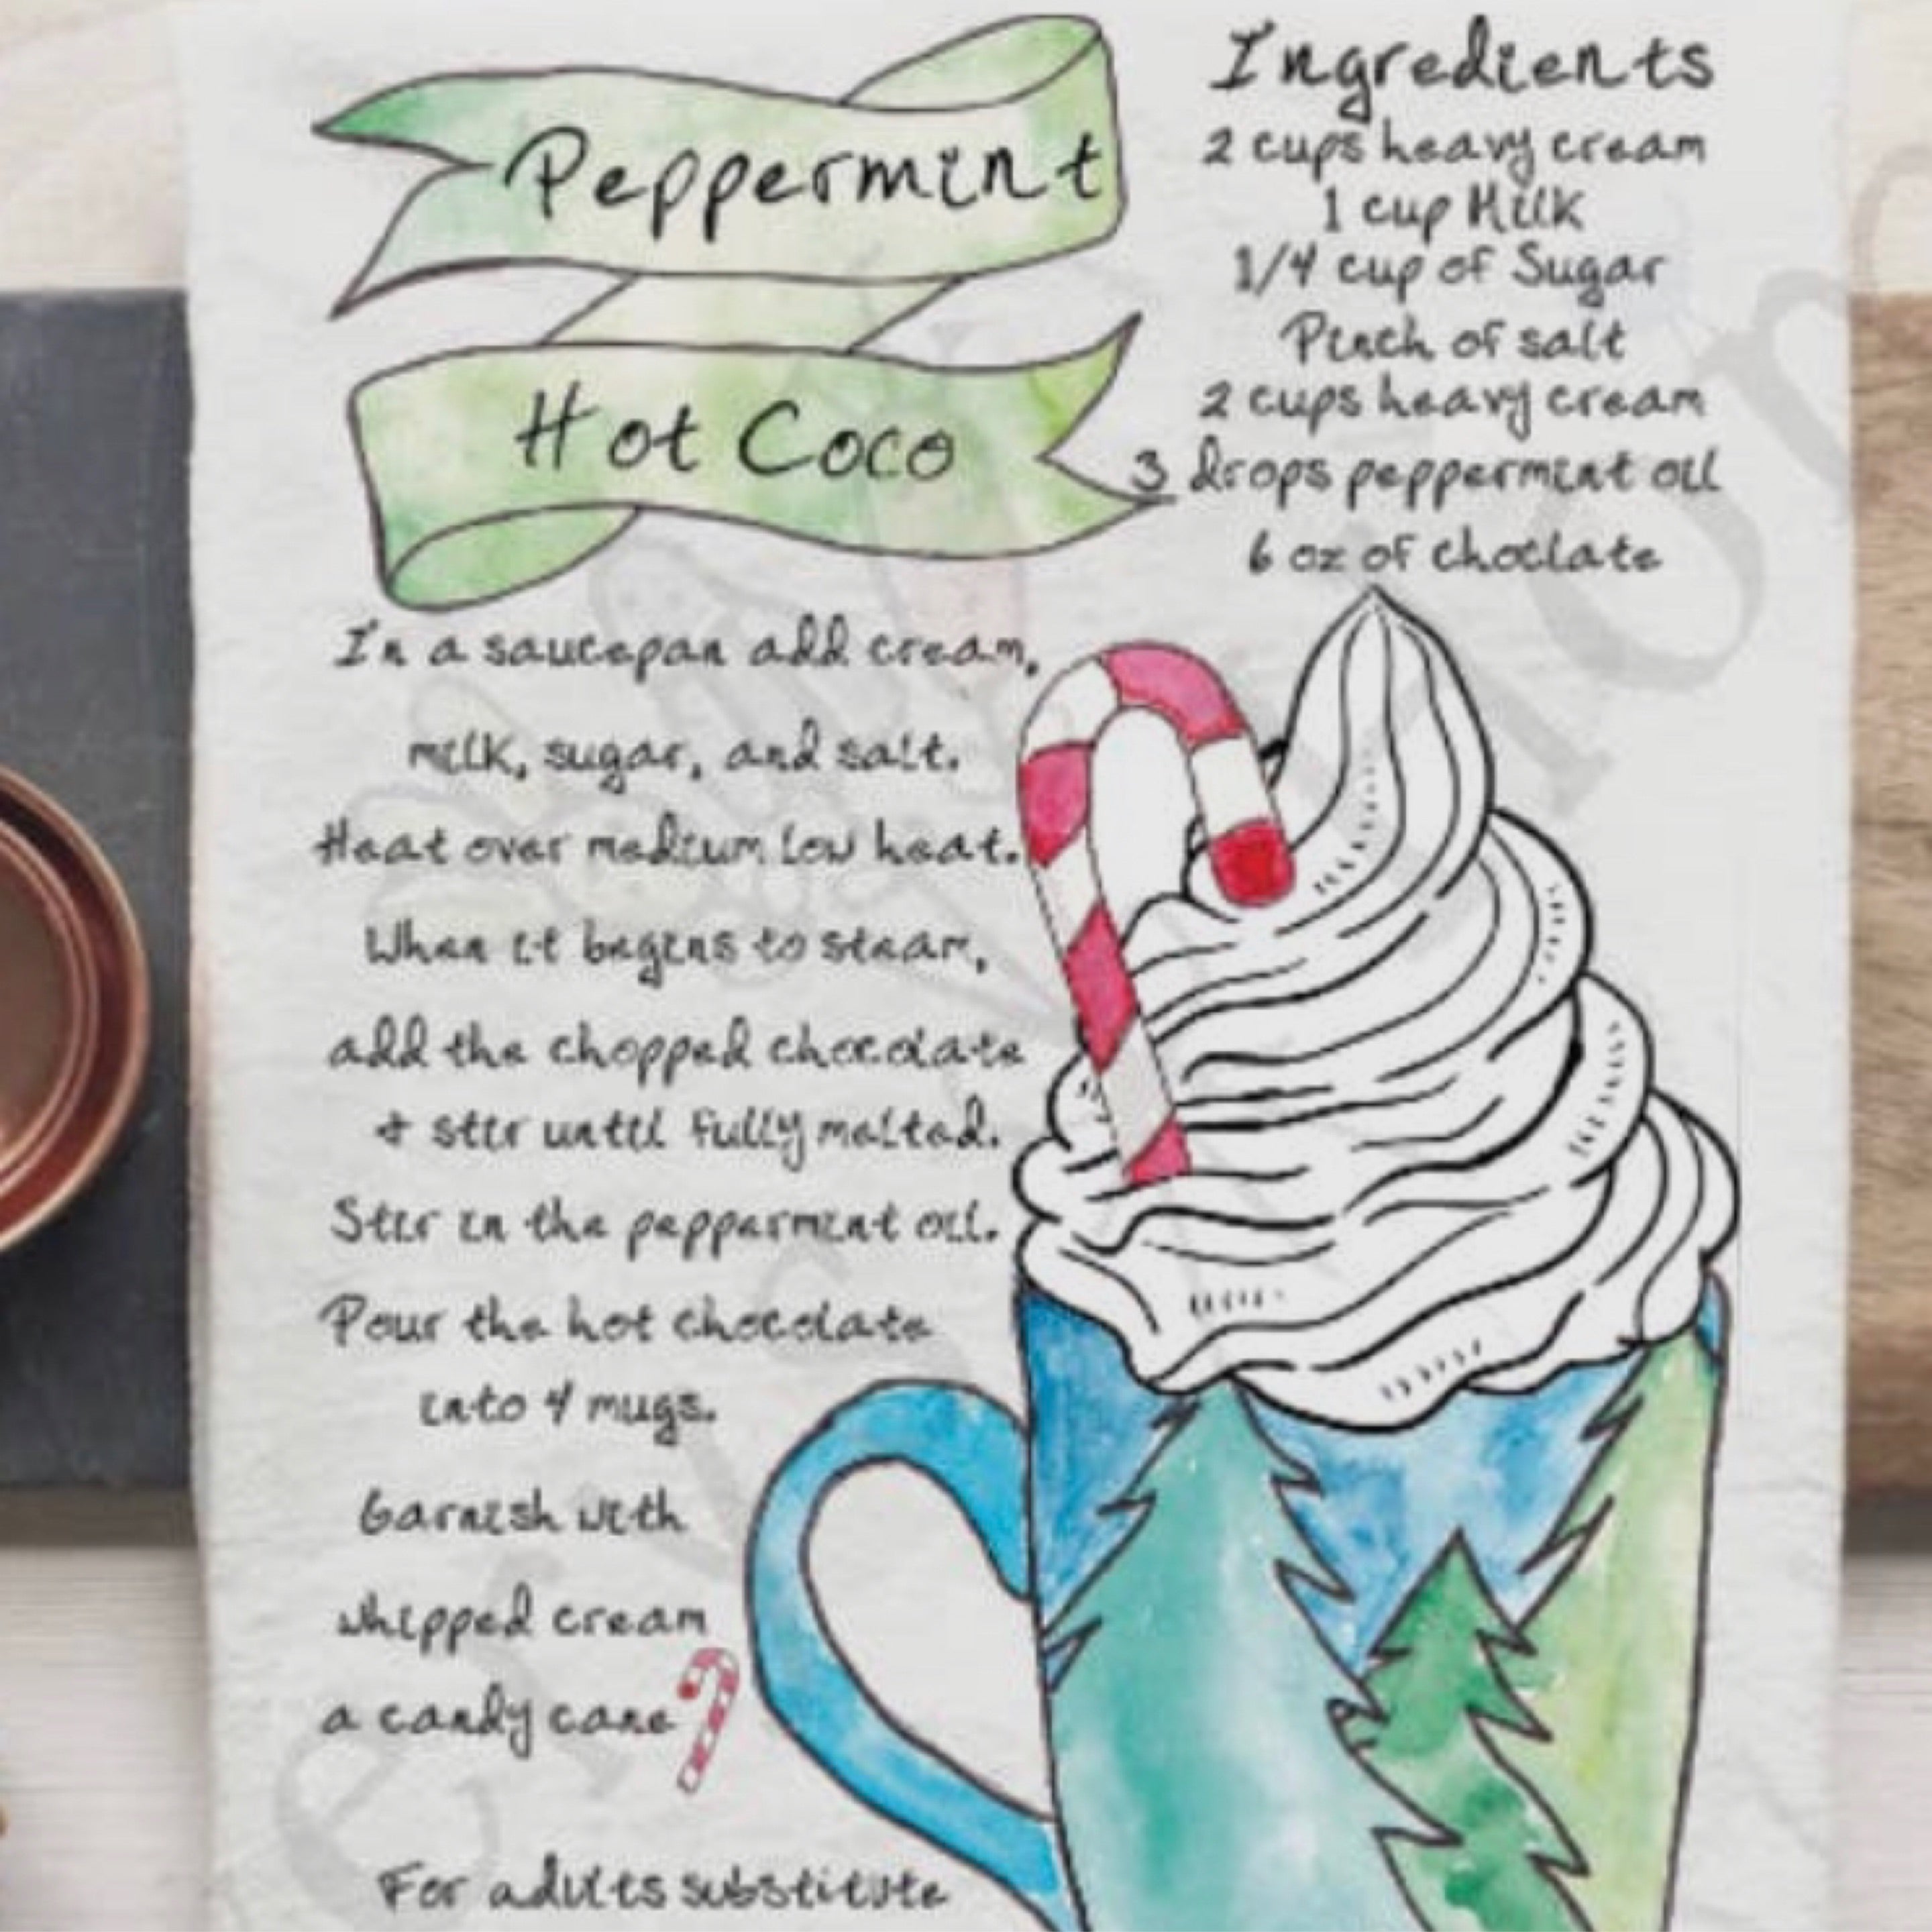 Peppermint
Hot Coco
Ingredients
2 cups heavy cream
1 cup Milk
1/4 cup of Sugar
Pinch of salt
2 cups heavy cream
3 drops peppermint oil
6 oz of choclate
In a saucepan add cream,
milk, sugar, and salt.
Heat over medium low heat.
When it begins to steam,
add the chopped chocolate
+ stir until fully melted.
Stir in the peppermint oil.
Pour the hot chocolate
into 4 mugs.
Garnish with
whipped cream
a candy cane
For adults substitute